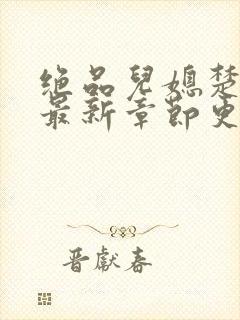 绝品儿媳楚
最新章节史
晋献春